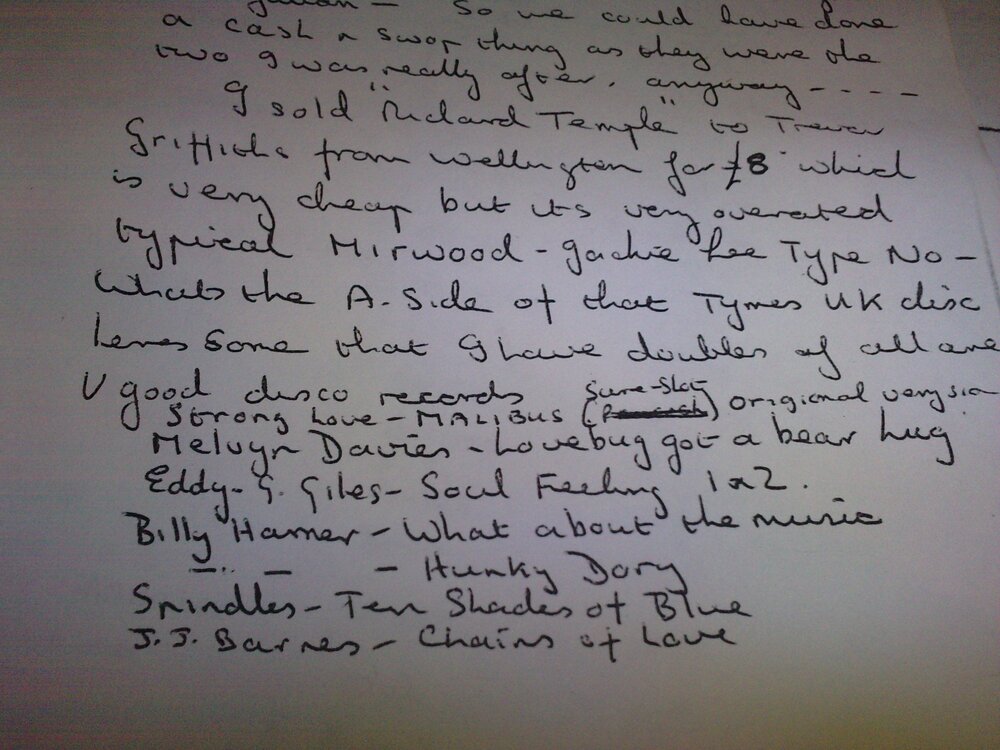 So we could have done
a cash n swop thing as they were the
two I was really after, anyway ----
I sold "Richard Temple" to Trevor
Griffiths from Wellington for £8 which
is very cheap but its very overated
typical Mirwood - Jackie Lee Type No -
Whats the A. Side of that Tymes UK disc
heres Some that I have doubles of all are
V good disco records
Strong Love - MALIBUS (Sure-Shot) original version
Melvyn Davies - Lovebug got a bear hug
Eddy - G. Giles - Soul Feeling 1 n 2.
Billy Harner - What about the music
— " — - Hunky Dory
Spindles - Ten Shades of Blue
J.J. Barnes - Chains of Love